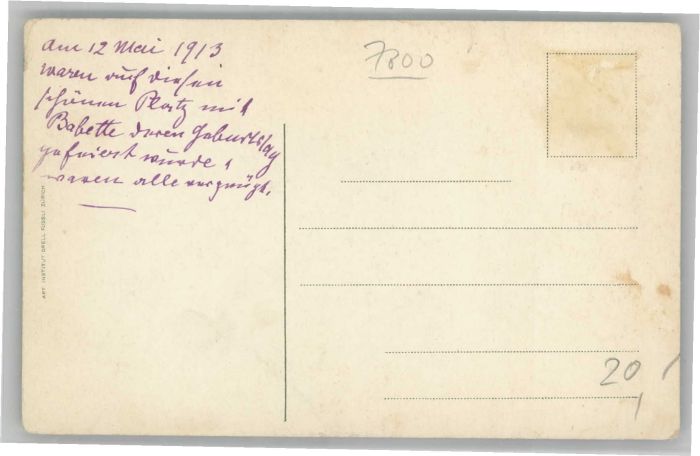 am 12 Mai 1913
waren auf diesen
schönen Platz mit
Babette deren Geburtstag
gefeiert wurde,
waren alle vergnügt.
ART. INSTITUT ORELL FÜSSLI ZÜRICH
7800
20